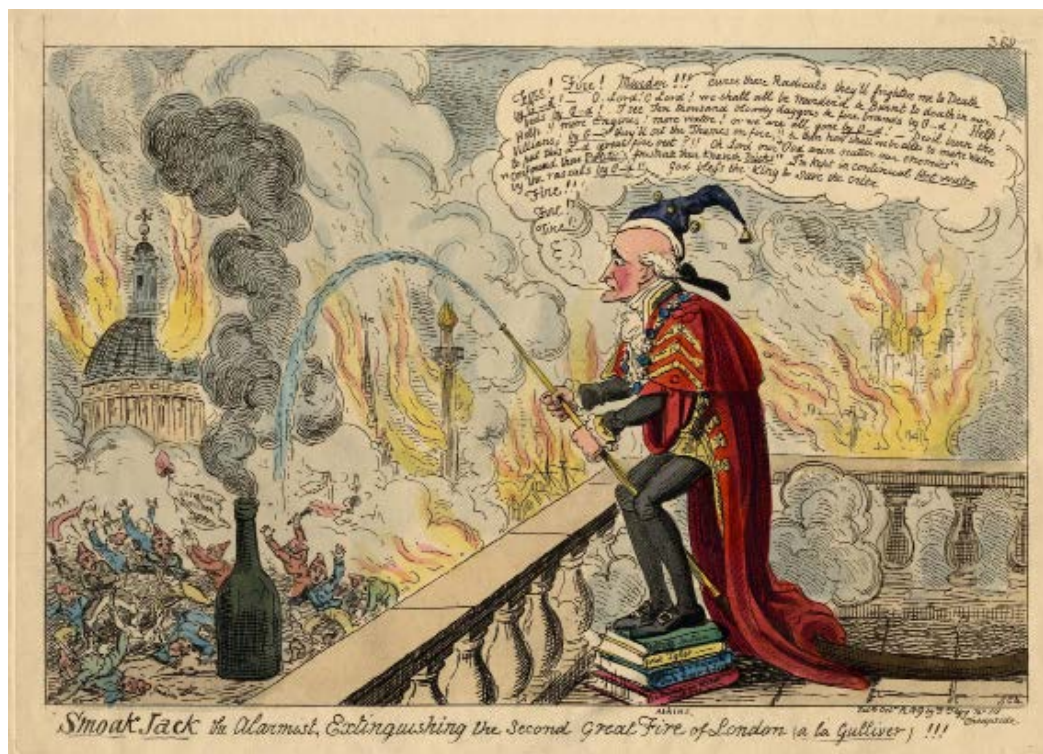 369
Fire! Fire! Murder!!! curse these Radicals they'll frighten me to Death
by G—d! — O. Lord! O Lord! we shall all be murder'd & Burnt to death in our
beds by G—d! I see Ten thousand bloody daggers & fire brands by G—d! Help!
Help!! more Engines! more water! or we are all gone by G—d! — burn the
Villians, by G— they'll set the Thames on fire, !! & then how shall we be able to make water
to put this d—d great fire out?!! Oh Lord our God arise scatter our enemies"
"confound their Politics, frustrate their knavish tricks" I'm kept in continual Hot water
by the rascals by G—d!! God bless the King & save the
Fire!!!
Fire!!
Fire!
Smoak Jack the Alarmist, Extinguishing the Second Great Fire of London (a la Gulliver) !!!
Cheapside